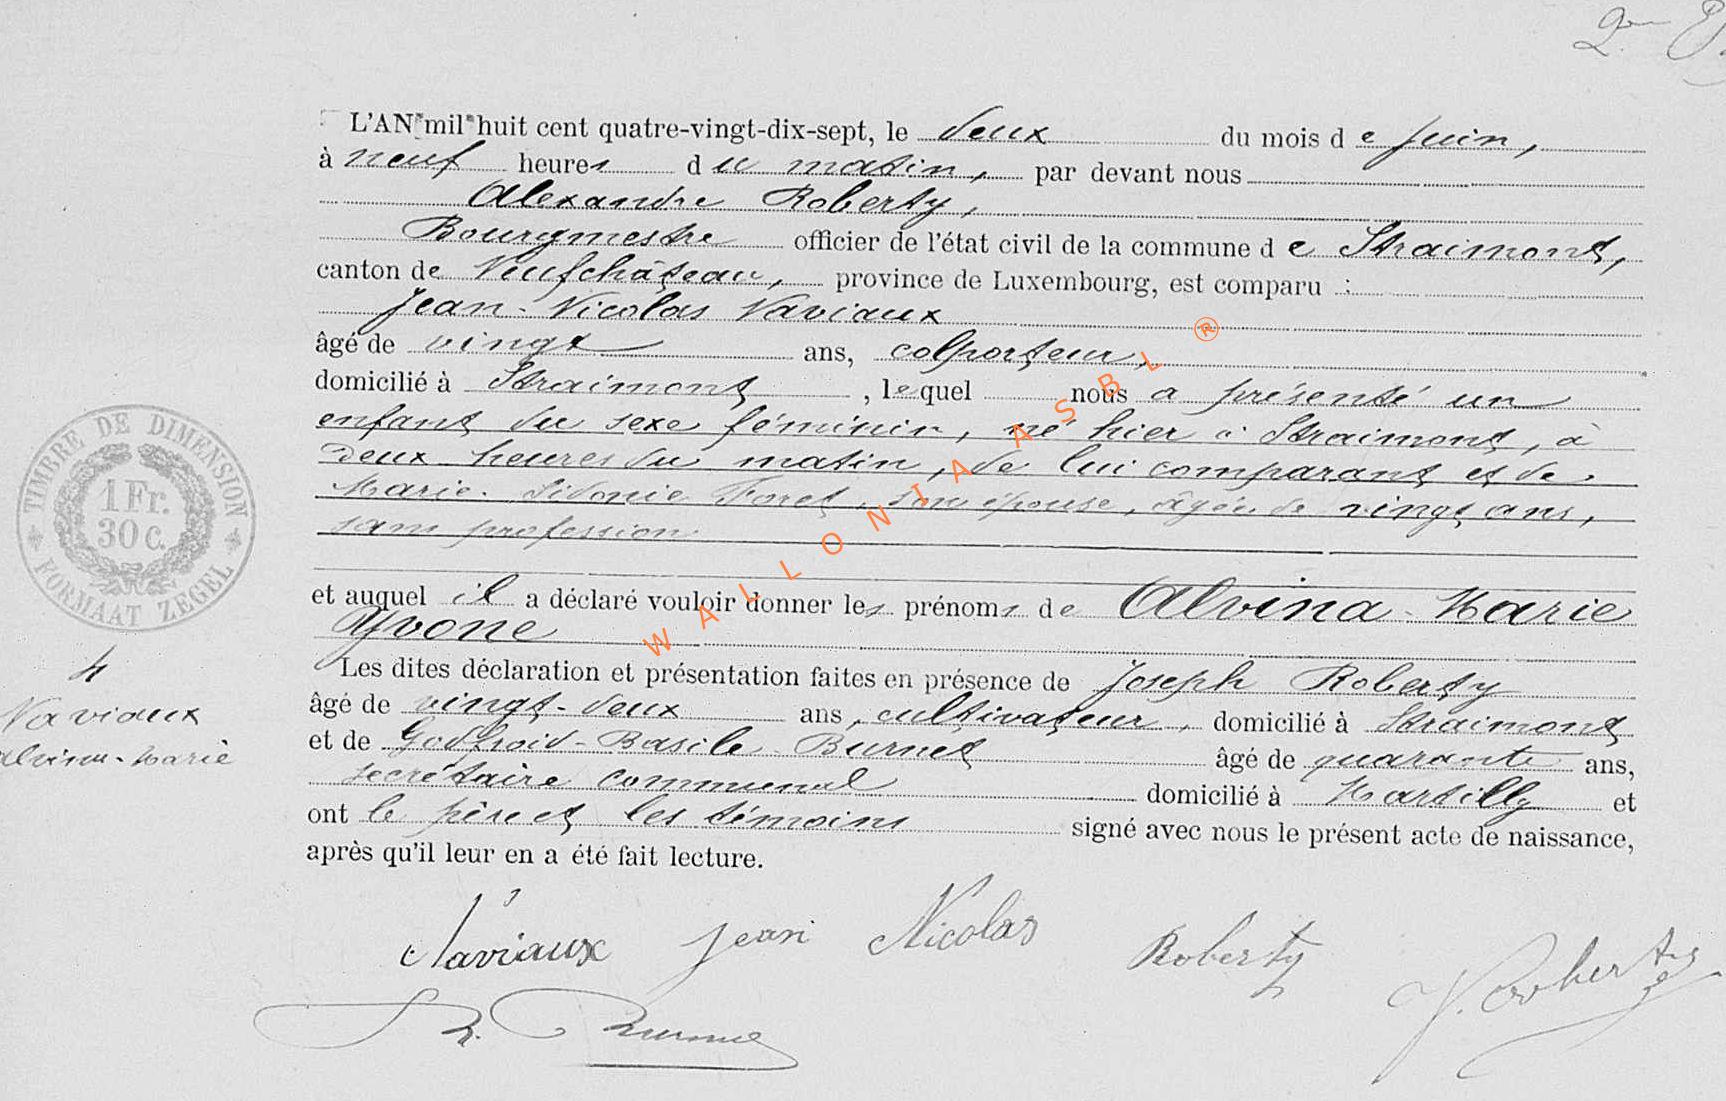 2me
L'AN mil huit cent quatre-vingt-dix-sept, le deux du mois de Juin,
à neuf heures du matin, par devant nous
Alexandre Roberty,
Bourgmestre officier de l'état civil de la commune de Straimont,
canton de Neufchâteau, province de Luxembourg, est comparu :
Jean-Nicolas Naviaux
âgé de vingt ans, colporteur,
domicilié à Straimont, lequel nous a présenté un
enfant du sexe féminin, né hier à Straimont, à
deux heures du matin, de lui comparant et de
Marie-Sidonie Foret, son épouse, âgée de vingt ans,
sans profession
et auquel il a déclaré vouloir donner les prénoms de Alvina-Marie
Yvone
Les dites déclaration et présentation faites en présence de Joseph Roberty
âgé de vingt-deux ans, cultivateur, domicilié à Straimont
et de Godfroid-Basile Burnet âgé de quarante ans,
secrétaire communal domicilié à Martilly et
ont le père et les témoins signé avec nous le présent acte de naissance,
après qu'il leur en a été fait lecture.
Naviaux Jean Nicolas Roberty J. Roberty
B. Burnet
TIMBRE DE DIMENSION
1 Fr.
30 C.
FORMAAT ZEGEL
4
Naviaux
Alvina-Marie
WALLONIA ASBL ®